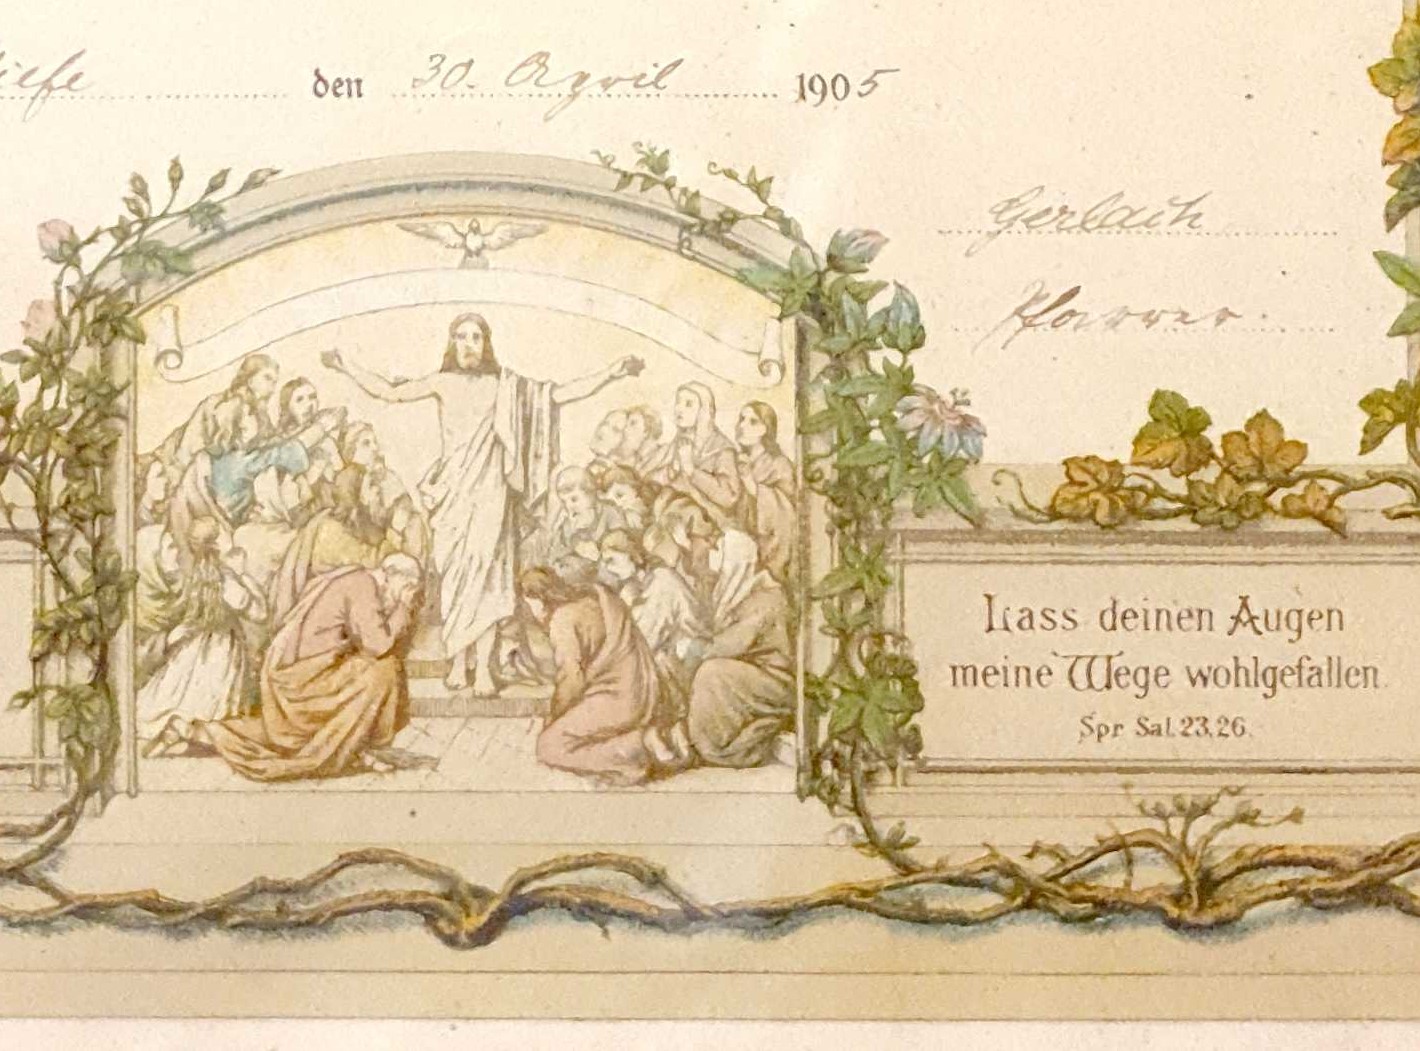 den 30. April 1905
Gerlach
Pfarrer.
Lass deinen Augen
meine Wege wohlgefallen.
Spr. Sal. 23,26.